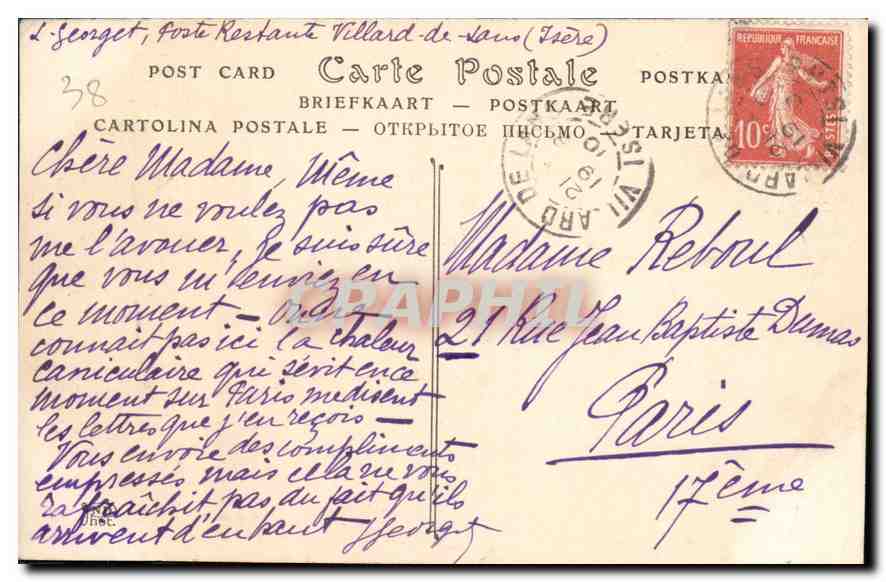 L. Georget, Poste Restante Villard-de-Lans (Isère)
38
POST CARD Carte Postale POSTKA
BRIEFKAART — POSTKAART
CARTOLINA POSTALE — ОТКРЫТОЕ ПИСЬМО — TARJETA
REPUBLIQUE FRANÇAISE
10c
POSTES
VILLARD DE LANS ISERE
Chère Madame, Même
si vous ne voulez pas
me l'avouer, je suis sûre
que vous m'enviez en
ce moment — On ne
connait pas ici la chaleur
caniculaire qui sévit en ce
moment sur Paris me disent
les lettres que j'en reçois —
Vous envoie des compliments
empressés mais cela ne vous
rafraîchit pas du fait qu'ils
arrivent d'en haut LGeorget
Phot.
Madame Reboul
21 Rue Jean Baptiste Dumas
Paris
17ème
DRAPHIL